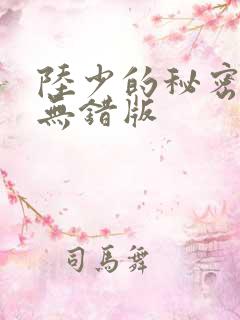 陸少的秘密
無錯版
司馬舞